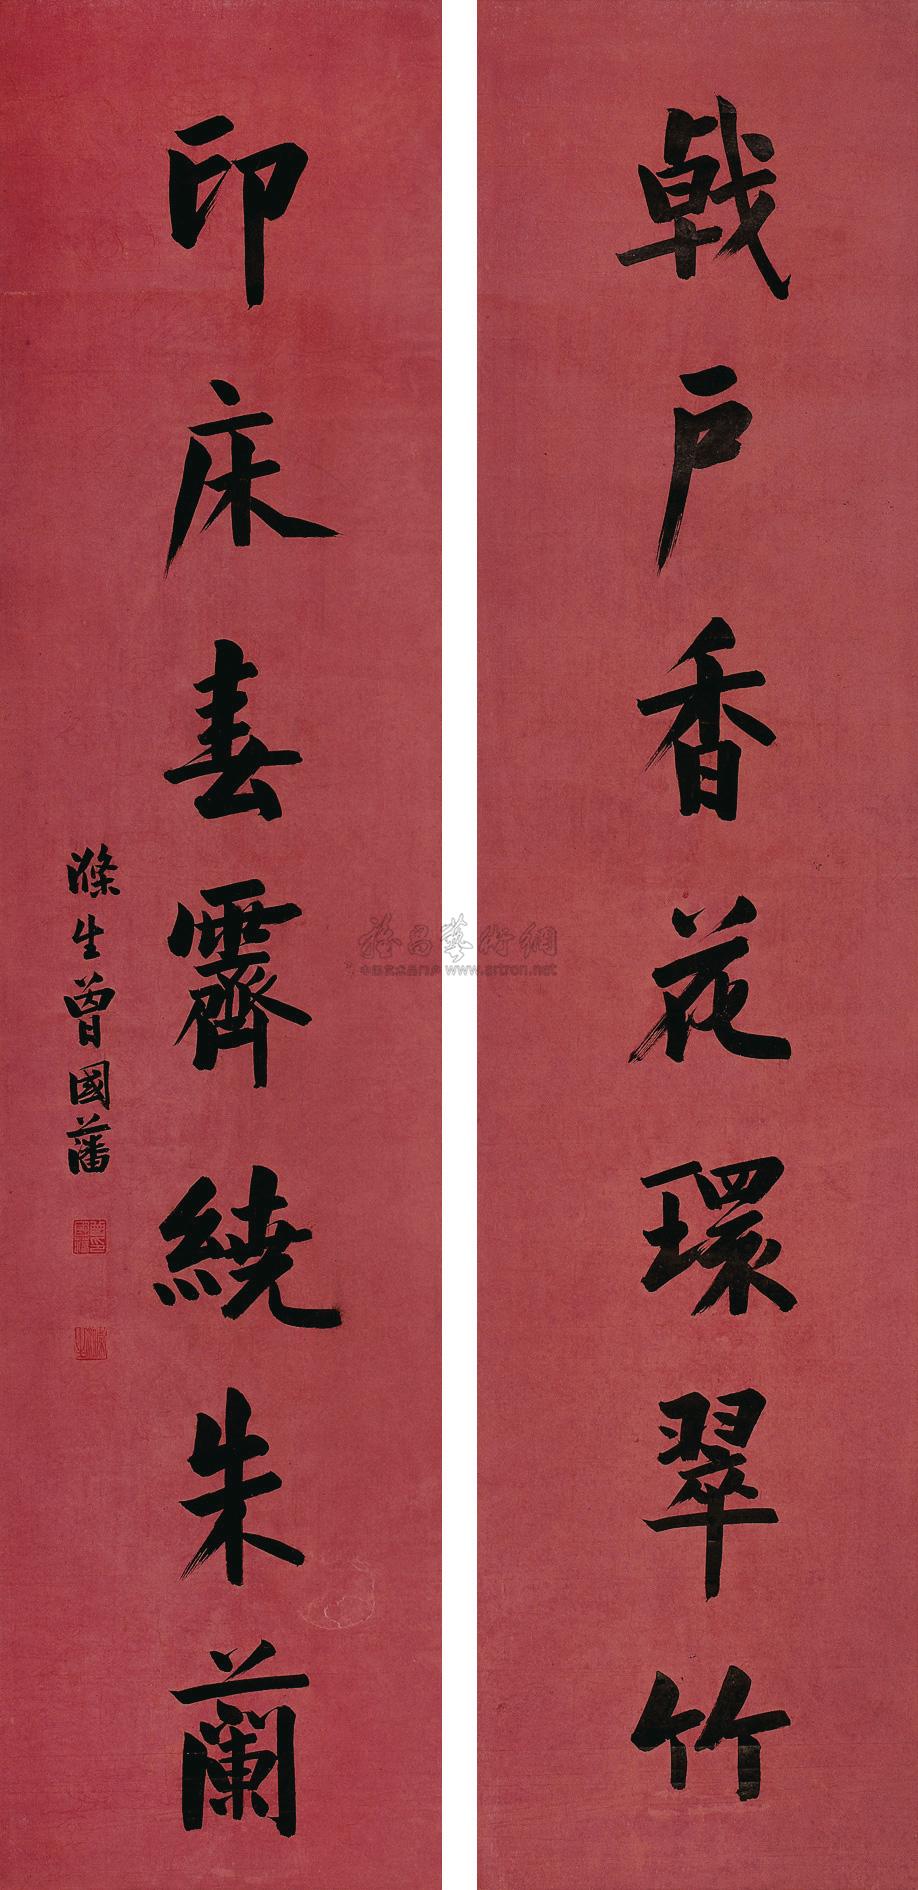 戟户香花環翠竹
印床春霽繞朱蘭
滌生曾國藩
www.artron.net